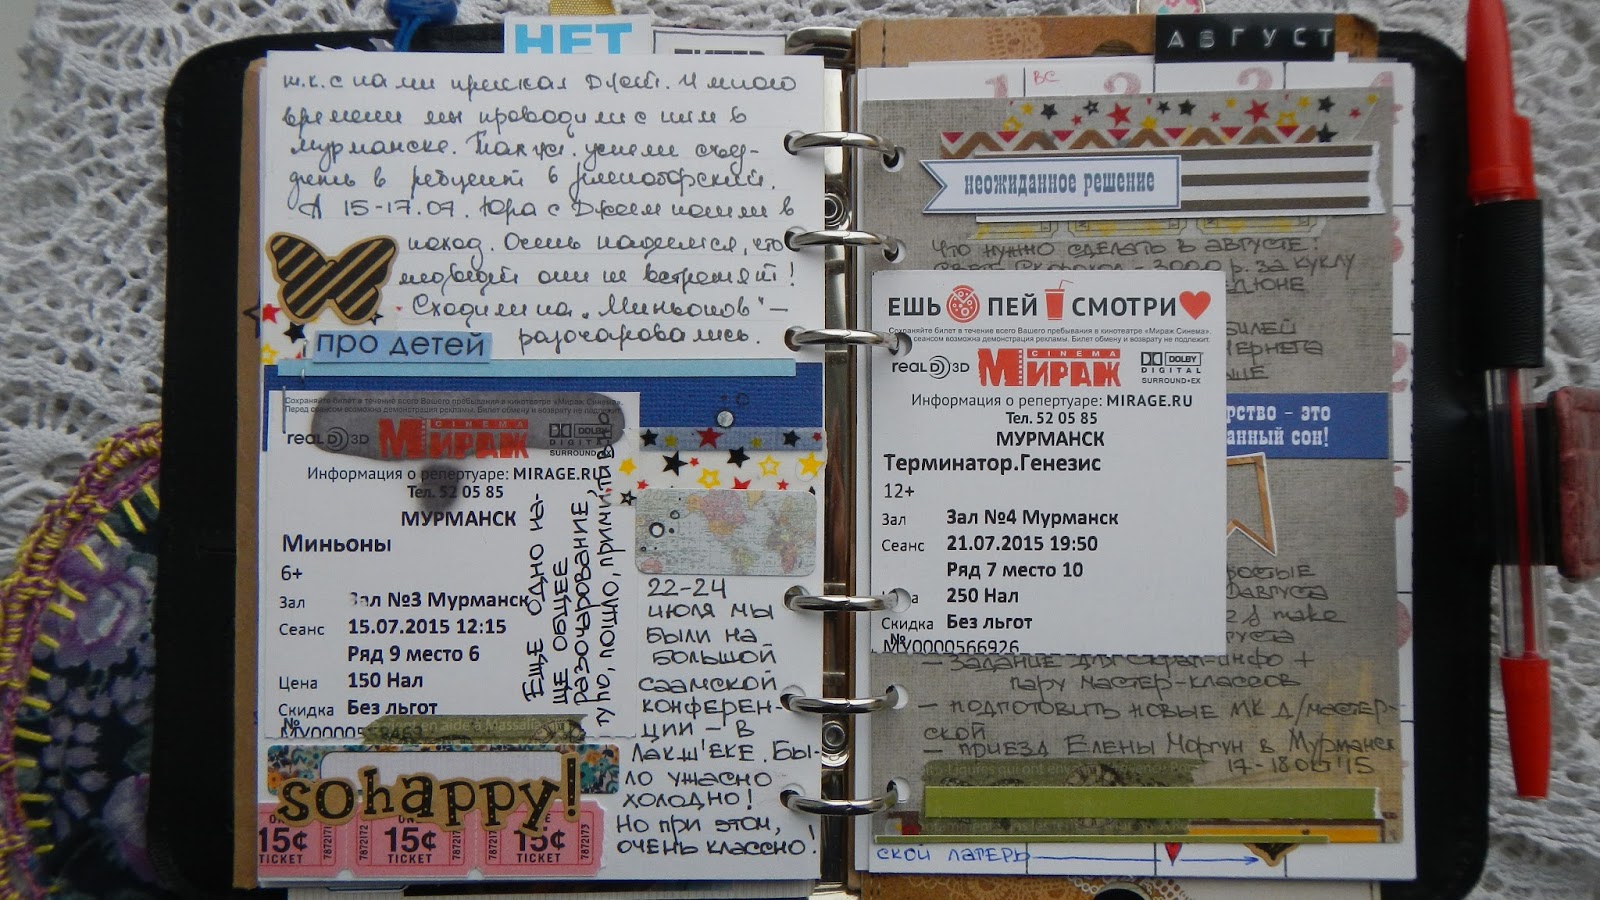 НЕТ
АВГУСТ
т.к. с нами приехал Джей. И много
времени мы проводили с ним в
Мурманске. Также успели съез-
в
А 15-17.07. Юра с Джеем пошли в
поход. Очень надеемся, что
медведей они не встретят!
Сходили на „Миньонов" –
разочаровались.
про детей
Сохраняйте билет в течение всего Вашего пребывания в кинотеатре «Мираж Синема».
Перед сеансом возможна демонстрация рекламы. Билет обмену и возврату не подлежит.
REAL D 3D
CINEMA
МИРАЖ
DOLBY
DIGITAL
SURROUND·EX
Информация о репертуаре: MIRAGE.RU
Тел. 52 05 85
МУРМАНСК
Миньоны
6+
Зал Зал №3 Мурманск
Сеанс 15.07.2015 12:15
Ряд 9 место 6
Цена 150 Нал
Скидка Без льгот
№
ЕЩЕ ОДНО НА-
ШЕ ОБЩЕЕ
РАЗОЧАРОВАНИЕ,
ТУПО, ПОШЛО, ПРИМИТИВНО
so happy!
15¢ 15¢ 15¢
TICKET TICKET TICKET
7872171 7872172 7872173
22-24
ИЮЛЯ МЫ
БЫЛИ НА
БОЛЬШОЙ
СААМСКОЙ
КОНФЕРЕН-
ЦИИ – В
ЛАКШ'ЕКЕ. БЫ-
ЛО УЖАСНО
ХОЛОДНО!
НО ПРИ ЭТОМ,
ОЧЕНЬ КЛАССНО!
1 ВС 2 3 4
неожиданное решение
ЧТО НУЖНО СДЕЛАТЬ В АВГУСТЕ:
3000 р. ЗА КУКЛУ
ЕШЬ ПЕЙ СМОТРИ
Сохраняйте билет в течение всего Вашего пребывания в кинотеатре «Мираж Синема».
сеансом возможна демонстрация рекламы. Билет обмену и возврату не подлежит.
REAL D 3D
CINEMA
МИРАЖ
DOLBY
DIGITAL
SURROUND·EX
Информация о репертуаре: MIRAGE.RU
Тел. 52 05 85
МУРМАНСК
Терминатор.Генезис
12+
Зал Зал №4 Мурманск
Сеанс 21.07.2015 19:50
Ряд 7 место 10
250 Нал
Скидка Без льгот
№
МУ0000566926
рство – это
анный сон!
make
– ЗАДАНИЕ ДЛЯ СКРАП-ИНФО +
ПАРУ МАСТЕР-КЛАССОВ
– ПОДГОТОВИТЬ НОВЫЕ МК Д/МАСТЕР-
СКОЙ
– ПРИЕЗД ЕЛЕНЫ МОРГУН В МУРМАНСК
17-18 ОКТ'15
СКОЙ ЛАГЕРЬ